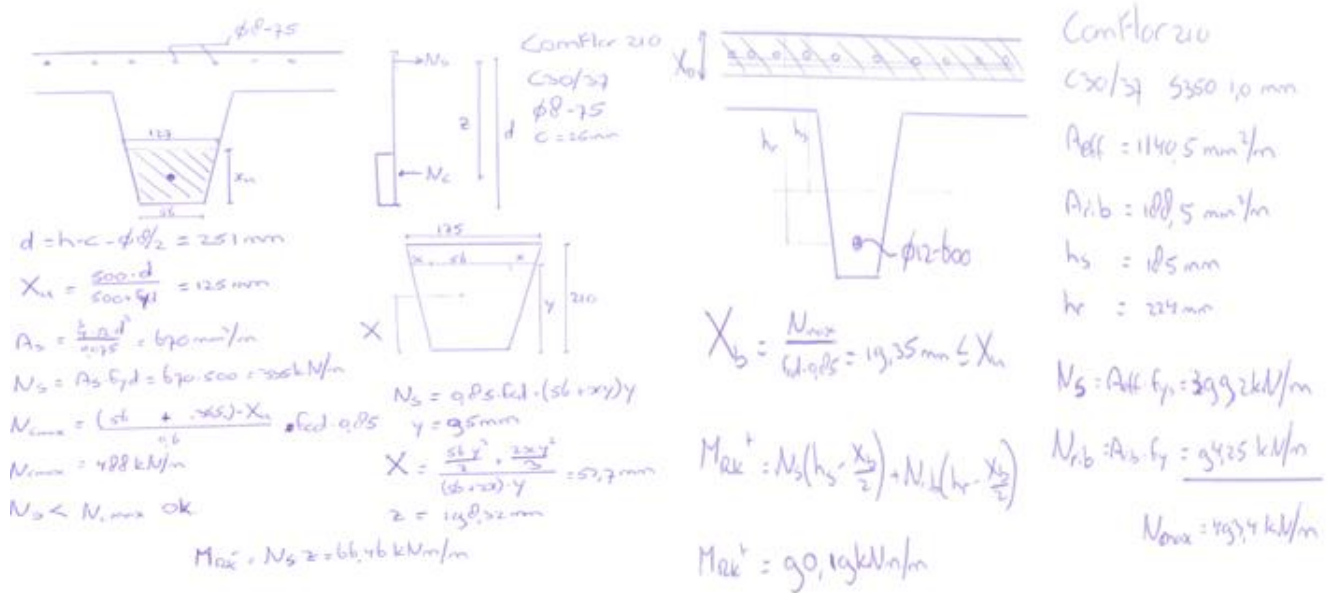 ø8-75
Ns
Nc
z
d
ComFlor 210
C30/37
ø8-75
c = 26mm
127
Xu
d = h-c-ø8/2 = 251 mm
Xu = 500·d / 500+fyd = 125 mm
As = 670 mm²/m
Ns = As·fyd = 670·500 = 335kN/m
Ncmax = (56 + ·Xu / 0,6 · fcd·0,85
Ncmax = 488 kN/m
Ns < Ncmax ok
175
x 56 x
y
210
X
Ns = 0,85·fcd·(56+xy)y
y = 95mm
X = 56y² / 2 + 2xy² / 3 / (56+2x)·y = 52,7 mm
z = 198,32mm
MRk⁻ = Ns z = 66,46 kNm/m
Xb
hr
hs
ø12-600
Xb = Nmax / fcd·0,85 = 19,35 mm ≤ Xu
MRk⁺ = Ns(hs - Xb/2) + Nrib(hr - Xb/2)
MRk⁺ = 90,19kNm/m
ComFlor 210
C30/37 S350 1,0 mm
Aeff = 1140,5 mm²/m
Arib = 188,5 mm²/m
hs = 185 mm
hr = 224 mm
Ns = Aeff·fyp = 399,2kN/m
Nrib = Arib·fy = 94,25 kN/m
Nmax = 493,4 kN/m